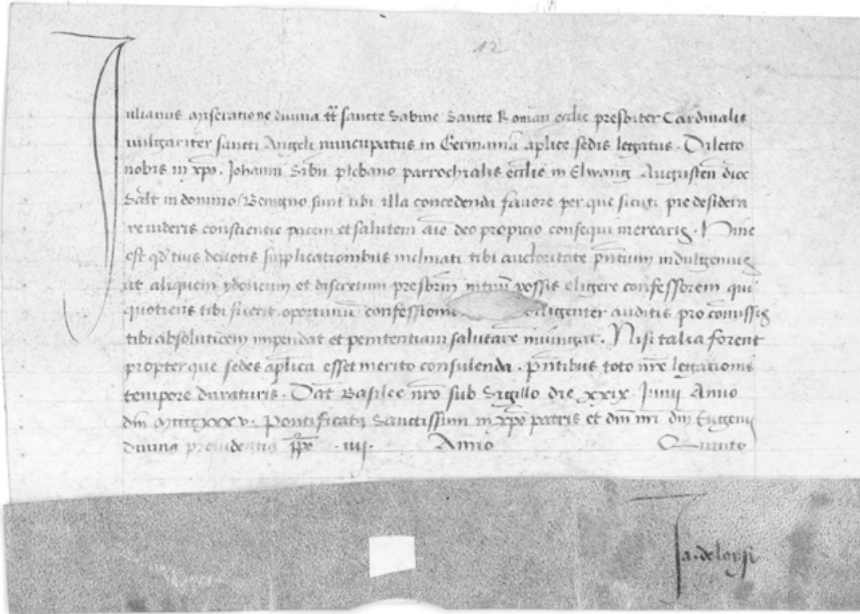 12
Julianus miseratione divina tt sancte Sabine Sancte Roman eccle presbiter Cardinalis
vulgariter sancti Angeli nuncupatus in Germania aplice sedis legatus. Dilecto
nobis in xpo. Johanni plebano parrochialis ecclie in Elwang Augusten dioc
Salt in domino. Benigno sunt tibi illa concedenda favore per que sicuti pre desidera
re videris conscientie pacem et salutem aie deo propicio consequi merearis. Hinc
est qd tuis devotis supplicationibus inclinati tibi auctoritate pntium indulgemus
ut aliquem ydoneum et discretum presbrm in tuu possis eligere confessorem qui
quotiens tibi fuerit oportunu confessione diligenter auditis pro comissis
tibi absolutioem impendat et penitentiam salutare iniungat. Nisi talia forent
propter que sedes aplica esset merito consulenda. pntibus toto nre legationis
tempore duraturis. Dat Basilee nro sub Sigillo die xxix Junii Anno
dni mccccxxxv. Pontificatus Sanctissimi in xpo patris et dni nri dni Eugenii
divina providentia ppe .iiij. Anno Quinto